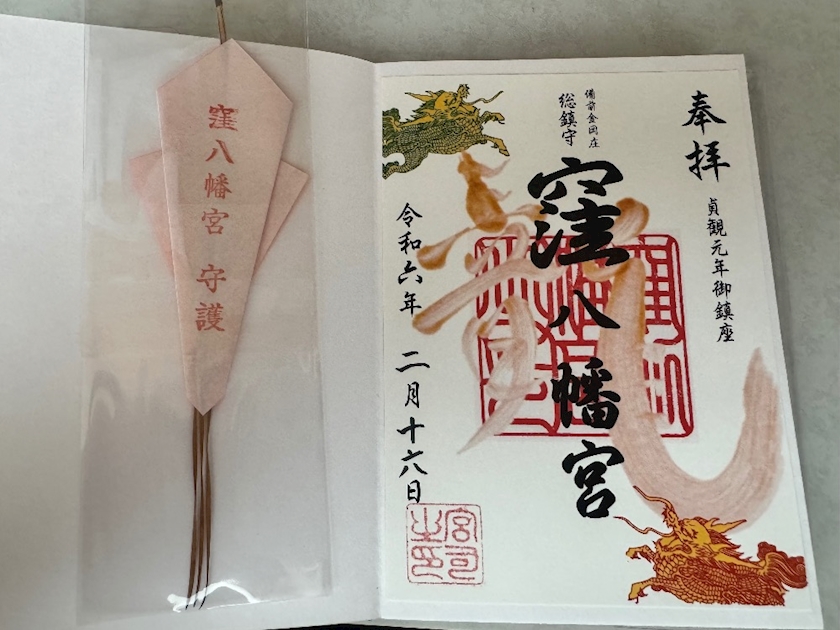 窪八幡宮 守護
奉拝
貞観元年御鎮座
備前金岡庄
総鎮守
窪八幡宮
龍
令和六年 二月十六日
宮司之印